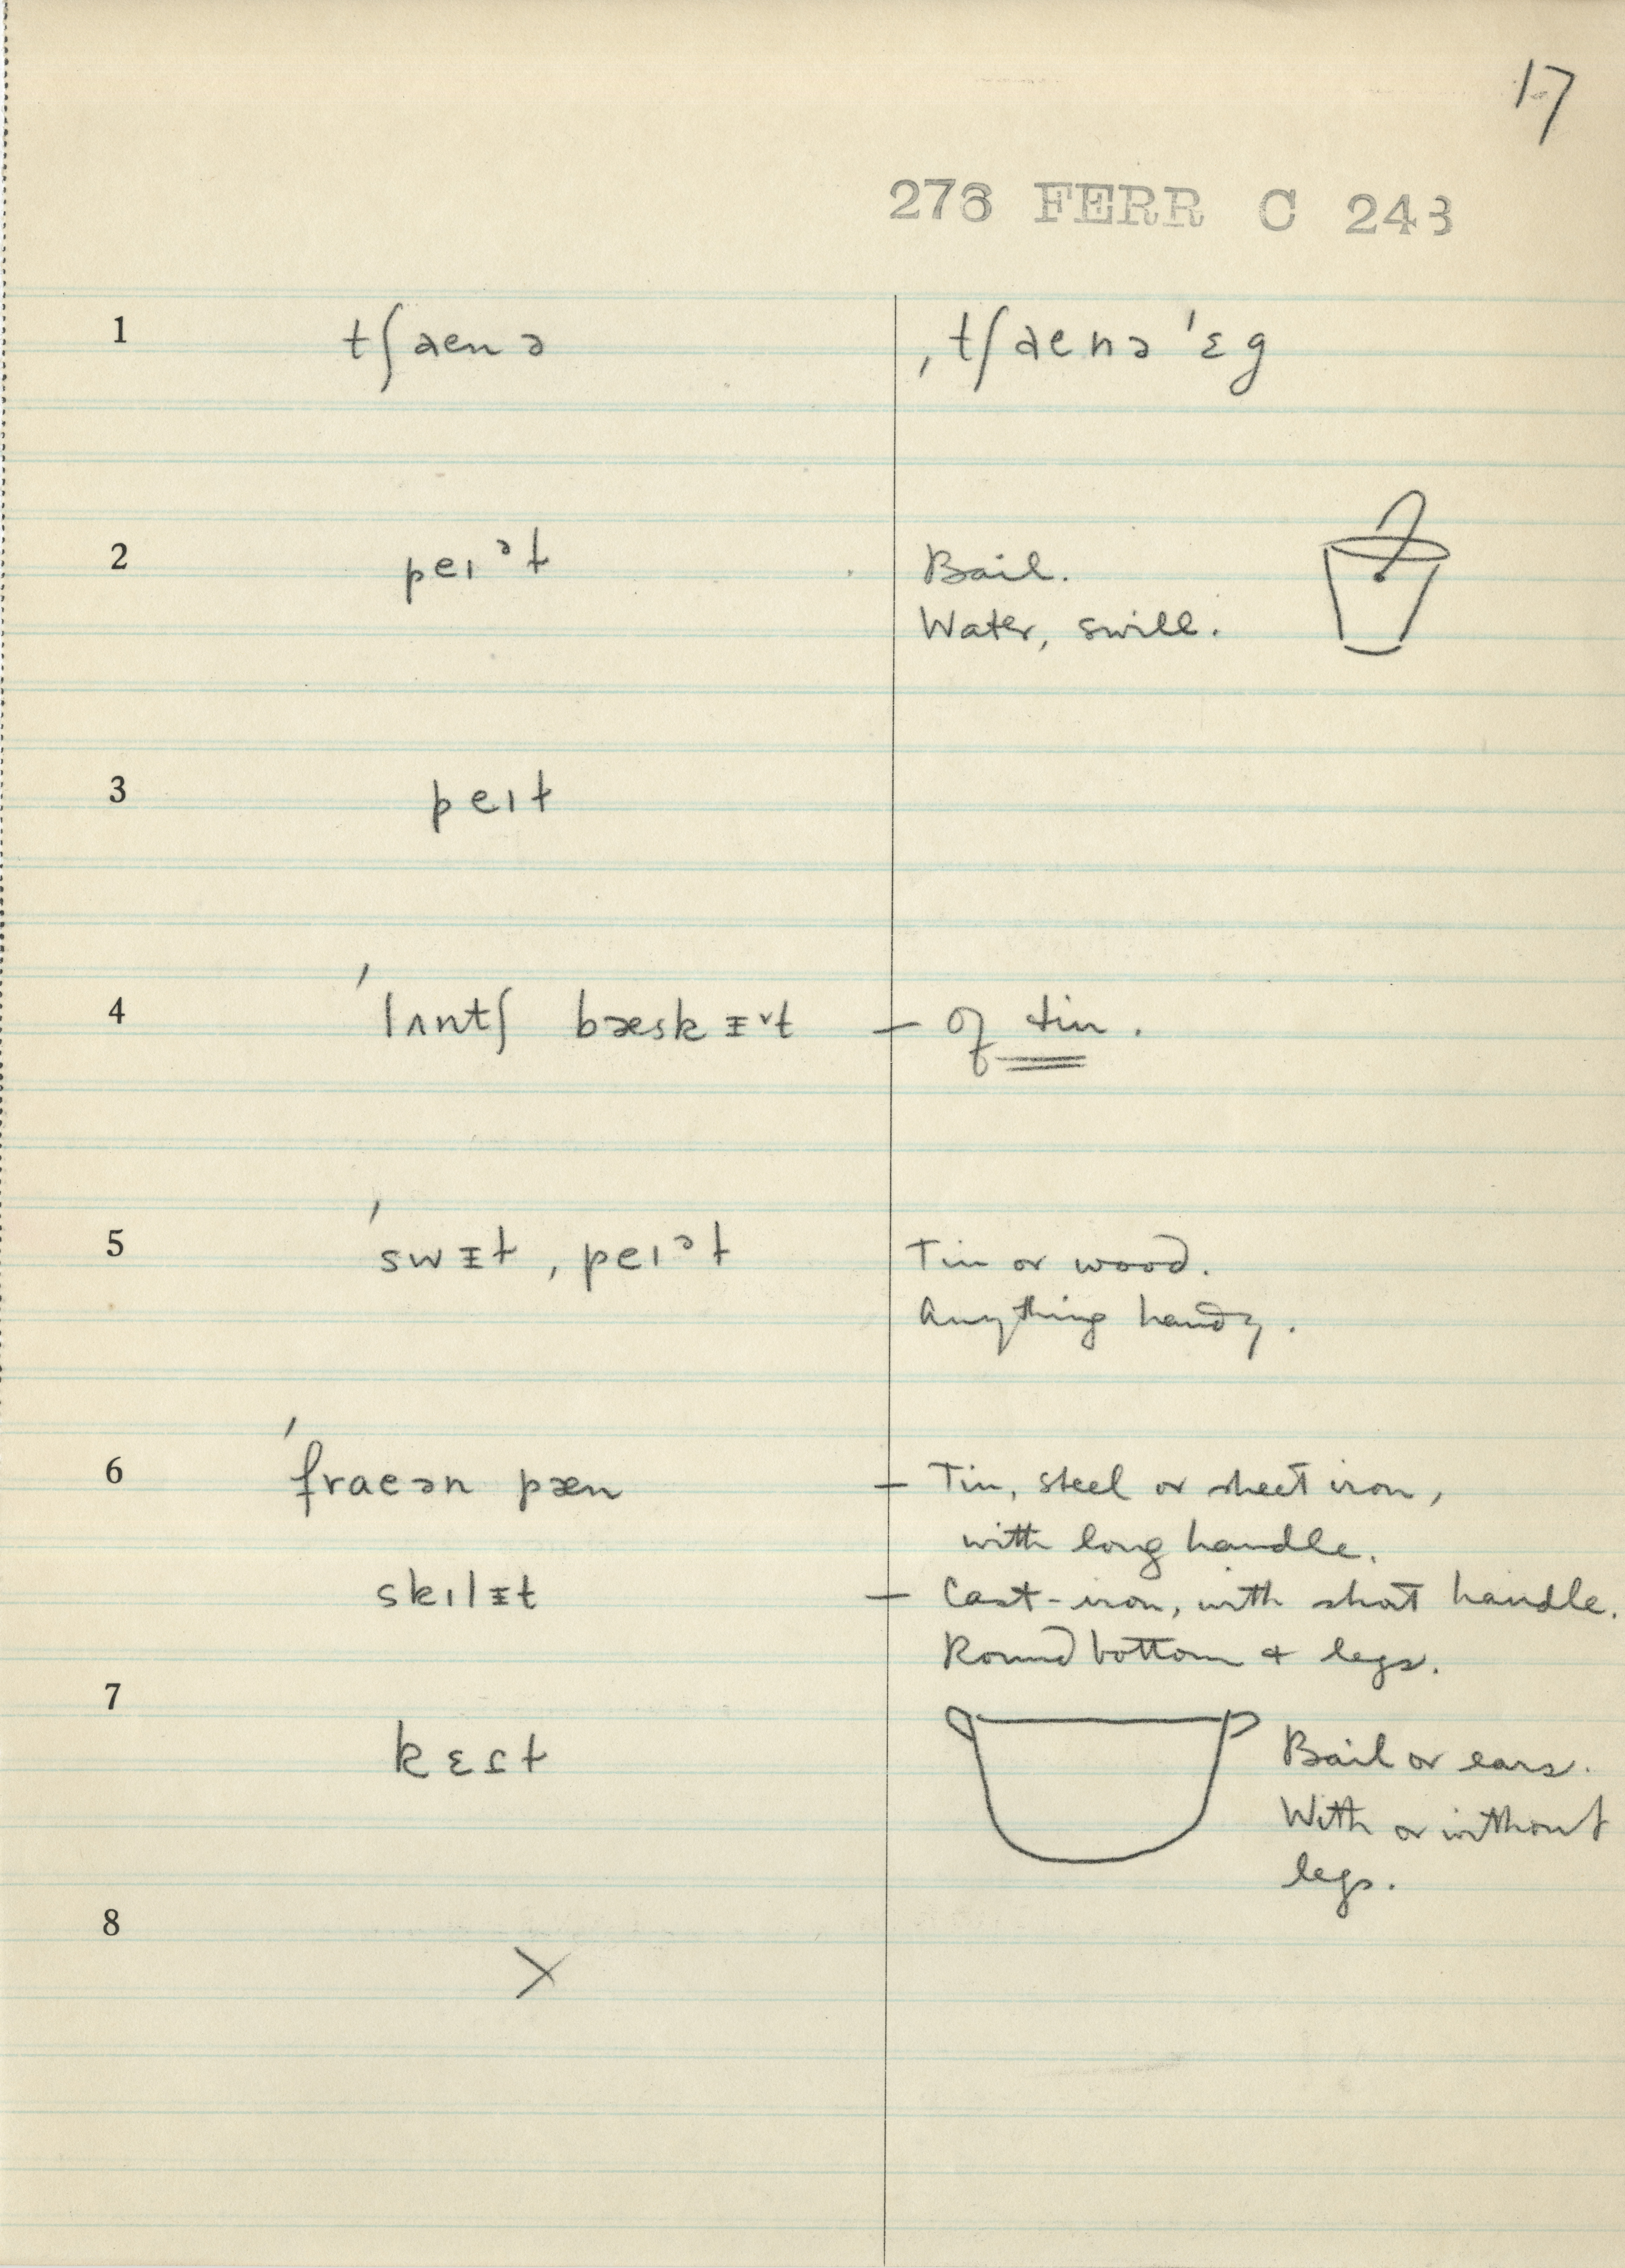 17
276 FERR C 243
1 tʃaenə ˌtʃaenə ˈɛg
2 peɪᵊɫ Bail.
Water, swill.
3 peɪɫ
4 ˈlʌntʃ bæskᵻ˅t — of tin.
5 ˈswᵻɫ ˌpeɪᵊɫ Tin or wood.
Anything handy.
6 ˈfraeən pæn — Tin, steel or sheet iron,
with long handle.
skɪlᵻt — Cast-iron, with short handle.
Round bottom + legs.
7
kɛɾɫ Bail or ears.
With or without
legs.
8
X